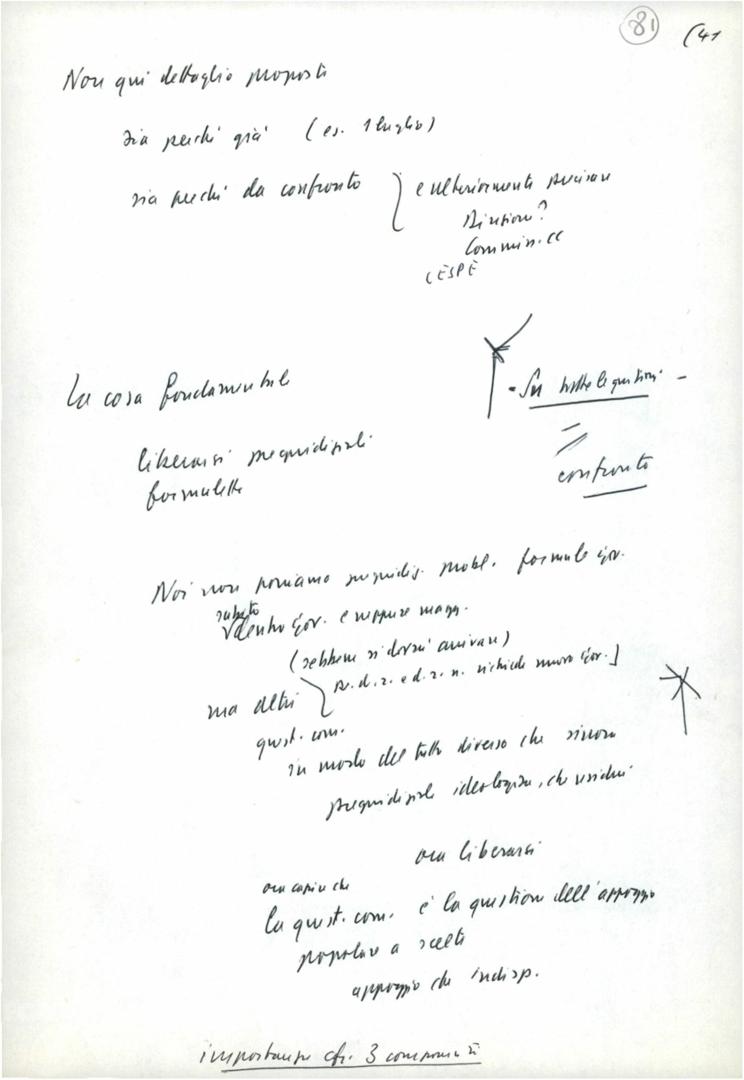 81 (41
Non qui dettaglio proposte
sia perché già (es. 1 luglio)
sia perché da confronto } e ulteriormente precisare
Direzione?
Commiss. CC
CESPE
La cosa fondamentale
- Su tutte le questioni -
=
confronto
liberarsi pregiudiziali
formulette
Noi non poniamo pregiudiz. probl. formule gov.
subito
dentro gov. e neppure magg.
(sebbene si dovrà arrivare)
p. d. r. e d. r. n. richiede nuovo gov.]
ma altri
quest. com.
in modo del tutto diverso che sinora
pregiudiziale ideologica, che
ora liberarsi
ora capire che
la quest. com. è la questione dell'appoggio
popolare a scelte
appoggio che indisp.
importanza cfr. 3 componenti